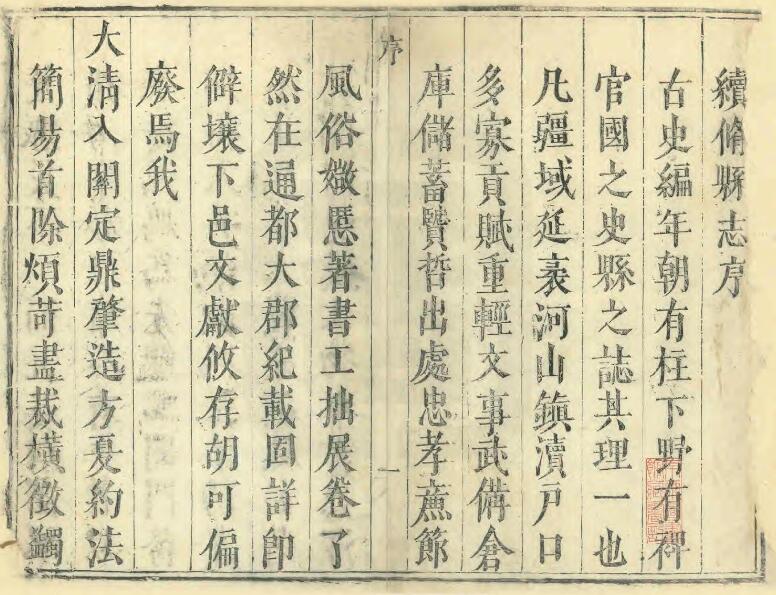 續脩縣志序
古史編年朝有柱下野有稗
官國之史縣之誌其理一也
凡疆域延袤河山鎮瀆戸口
多寡貢賦重輕文事武備倉
庫儲蓄賢哲出處忠孝廉節
序
一
風俗媺慝著書工拙展卷了
然在通都大郡紀載固詳卽
僻壤下邑文獻攸存胡可偏
廢焉我
大清入關定鼎肇造方夏約法
簡易首除煩苛盡裁橫徵蠲